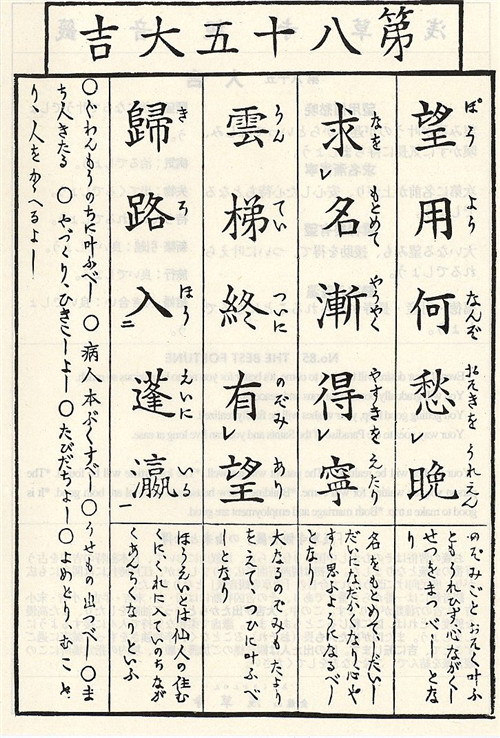 第八十五大吉
望用何愁レ晩
ぼうようなんぞおそきをうれえん
のぞみごとおそく叶ふ
ともうれひず心ながくし
てせをまつべしとな
り
求レ名漸得レ寧
なをもとめてやうやくやすきをえたり
名をもとめてしだいし
だいになだかくなり心や
すく思ふようになるべし
となり
雲梯終有レ望
うんていついにのぞみあり
大なるのぞみもたより
をえてつひに叶ふべ
しとなり
歸路入二蓬瀛一
きろほうえいにいる
ほうえいとは仙人の住む
くに也これに入ていのちなが
くあんらくなりといふ
〇ぐわんもうのちに叶ふべし〇病人本ぷくすべし〇うせもの出つべし〇ま
ち人きたる〇やづくり、ひきこしよし〇たびだちよし〇よめとり、むこと
り、人をかゝへるよし